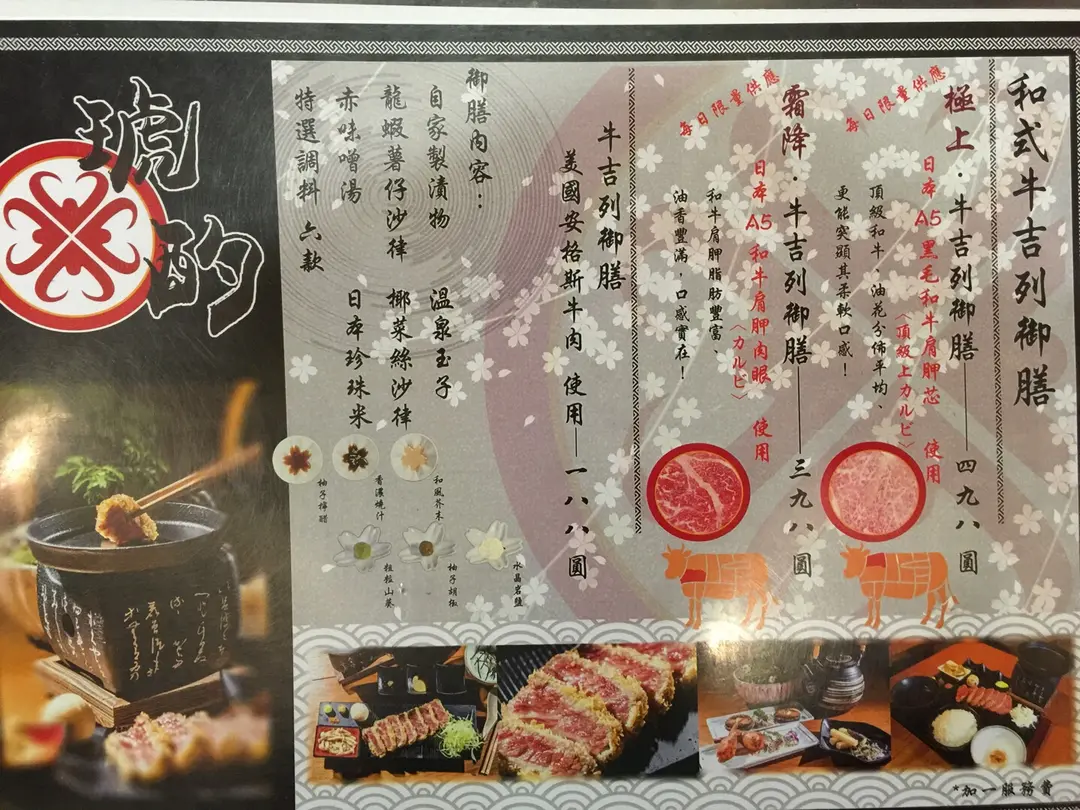 琥酌
和式牛吉列御膳
每日限量供應
極上．牛吉列御膳——四九八圓
日本A5黑毛和牛肩胛芯使用
〈頂級上カルビ〉
頂級和牛、油花分佈平均、
更能突顯其柔軟口感！
每日限量供應
霜降．牛吉列御膳——三九八圓
日本A5和牛肩胛肉眼使用
〈カルビ〉
和牛肩胛脂肪豐富、
油香豐滿，口感實在！
牛吉列御膳
美國安格斯牛肉 使用—一八八圓
御膳內容：
自家製漬物 溫泉玉子
龍蝦薯仔沙律 椰菜絲沙律
赤味噌湯 日本珍珠米
特選調料 六款
和風芥末
香濃燒汁
柚子檸醋
水晶岩鹽
柚子胡椒
粗粒山葵
*加一服務費